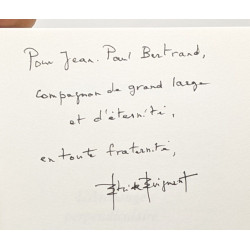 Pour Jean-Paul Bertrand,
compagnon de grand large
et d'éternité,
en toute fraternité,